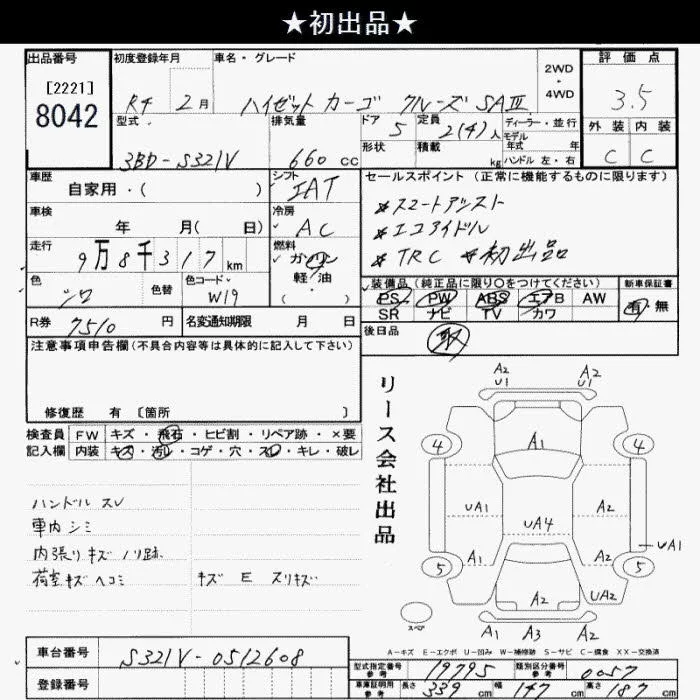 ★初出品★
出品番号 [2221] 8042
初度登録年月 R4 2月
車名・グレード ハイゼットカーゴ クルーズSAⅢ
2WD・4WD
評価点 3.5
外装 内装
C C
型式 3BD-S321V
排気量 660 cc
ドア 5
形状
定員 2(4)人
積載 kg
ディーラー・並行
モデル年式 年
ハンドル 左・右
車歴 自家用・( )
シフト IAT
セールスポイント(正常に機能するものに限ります)
*スマートアシスト
*エコアイドル
*TRC *初出品
車検 年 月( 日)
冷房 AC
走行 9万8千317 km
燃料 ガソリン
軽・油
( )
色 シロ
色替
色コード W19
装備品(純正品に限り○をつけてください)
PS PW ABS エアB AW
SR ナビ TV カワ
新車保証書 有・無
R券 7510 円
名変通知期限 月 日
後日品 取
注意事項申告欄(不具合内容等は具体的に記入して下さい)
修復歴 有 [箇所 ]
検査員記入欄
FW キズ・飛石・ヒビ割・リペア跡・×要
内装 キズ・汚レ・コゲ・穴・スレ・キレ・破レ
ハンドル スレ
車内シミ
内張りキズ ノリ跡
荷室キズヘコミ
キズ E スリキズ
リース会社出品
A2 U1
A2 U1
4
A1
4
UA1
UA4
A2
UA1
A1
A2
5
5
A2
UA2
スペア
A1 A3 A2
A-キズ E-エクボ U-凹み W-補修跡 S-サビ C-腐食 XX-交換済
車台番号 S321V-0512608
登録番号
型式指定番号 参考 19795
類別区分番号 参考 0057
車庫証明用 参考 長さ 339 cm 幅 147 cm 高さ 187 cm